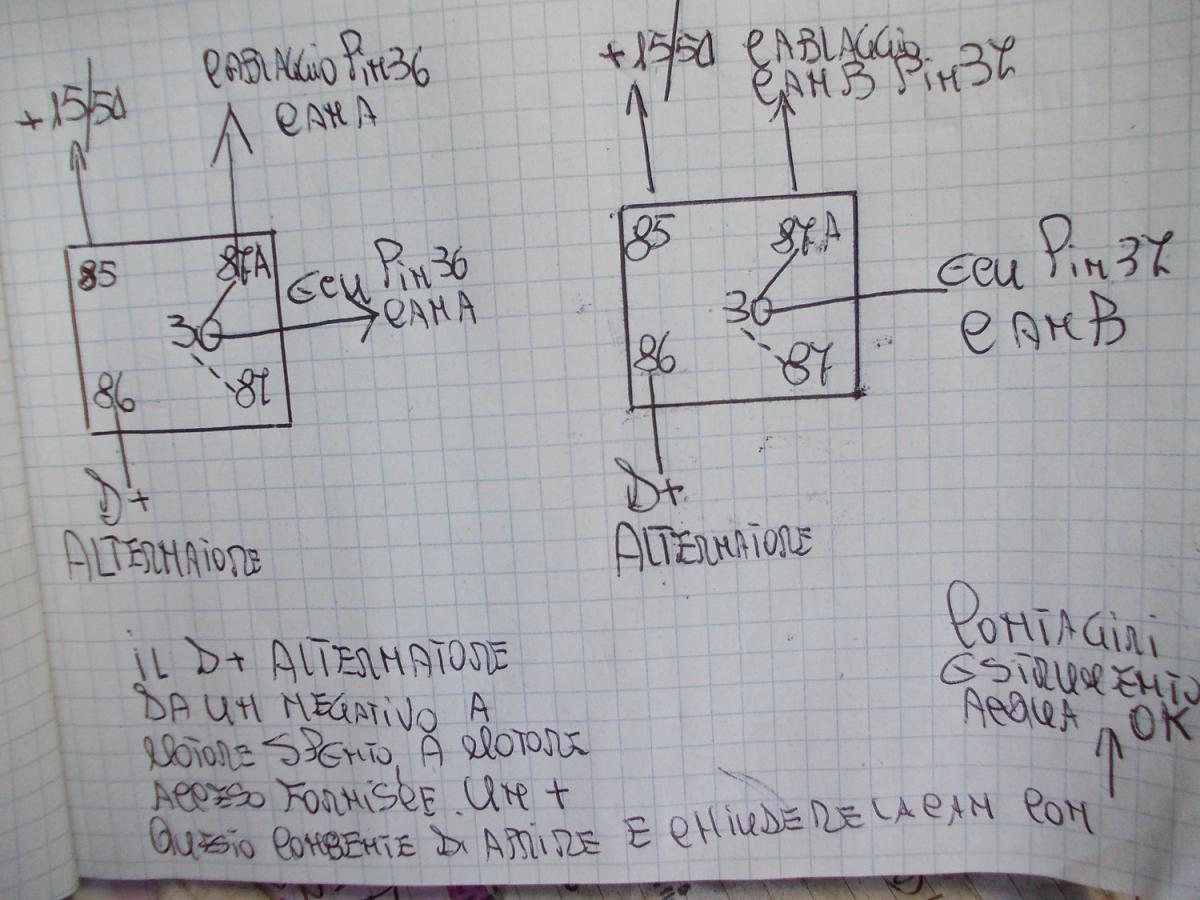 +15/50
CABLAGGIO Pin 36
CAN A
85
87A
30
86
87
ECU Pin 36
CAN A
D+
ALTERNATORE
+15/50
CABLAGGIO
CAN B Pin 37
85
87A
30
86
87
ECU Pin 37
CAN B
D+
ALTERNATORE
IL D+ ALTERNATORE
DA UN NEGATIVO A
MOTORE SPENTO, A MOTORE
ACCESO FORNISCE UN +
QUESTO CONSENTE DI APRIRE E CHIUDERE LA CAN CON
CONTAGIRI
E STRUMENTO
ACQUA OK